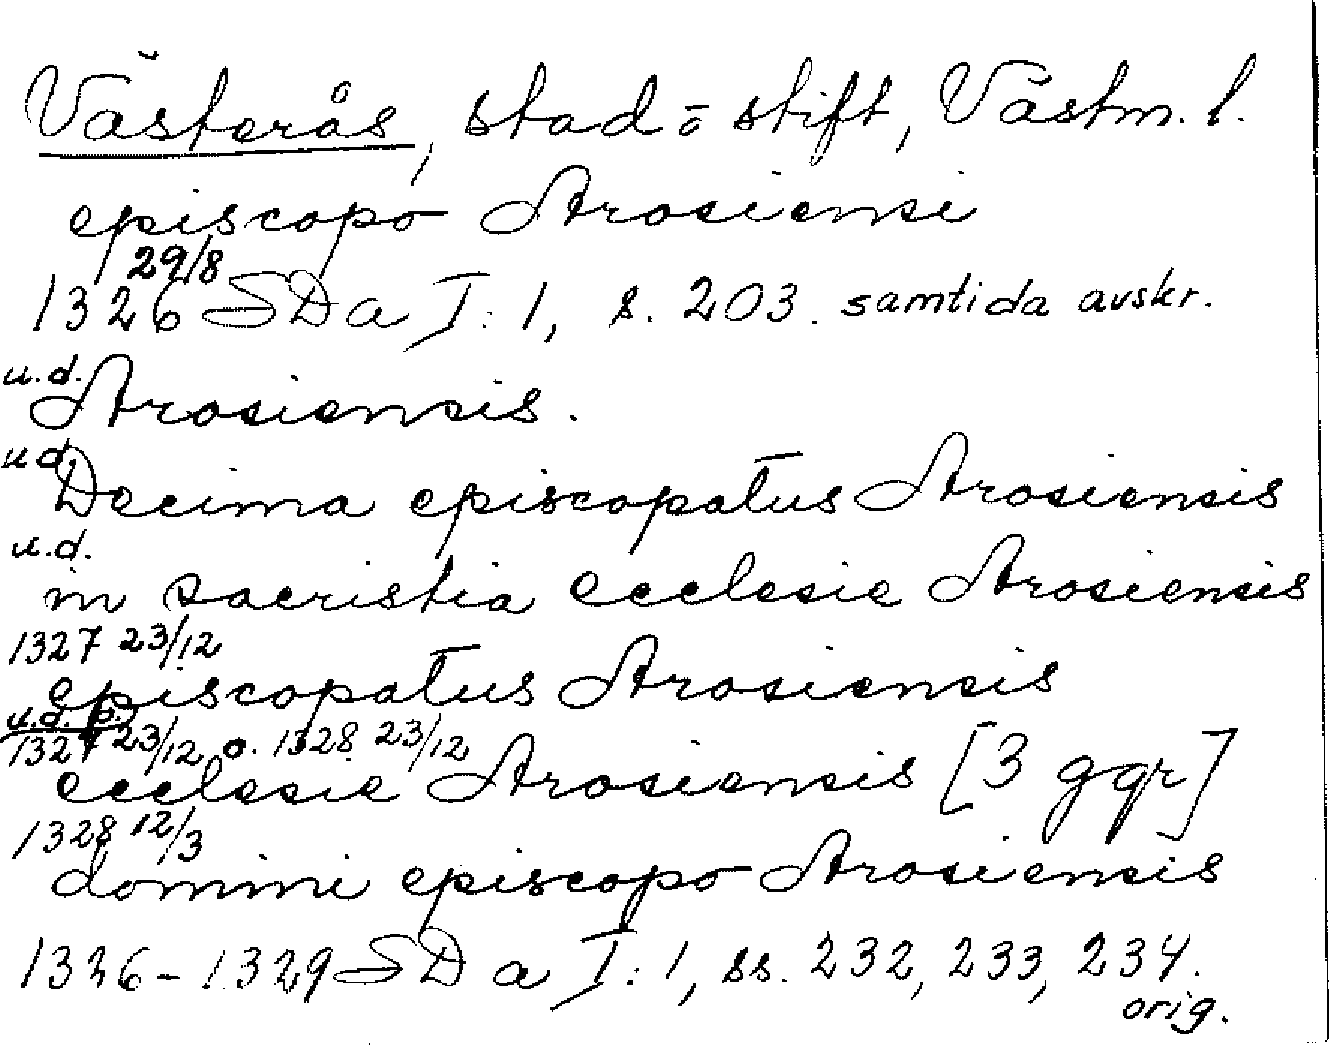 Västerås, stad o stift, Västm. l.
episcopo Arosiensi
29/8
1326 SD a I: 1, s. 203. samtida avskr.
u.d.
Arosiensis.
u.d.
Decima episcopatus Arosiensis
u.d.
in sacristia ecclesie Arosiensis
1327 23/12
episcopatus Arosiensis
u.d.
1327 23/12 o. 1328 23/12
ecclesie Arosiensis [3 ggr]
1328 12/3
domini episcopo Arosiensis
1326-1329 SD a I: 1, ss. 232, 233, 234.
orig.